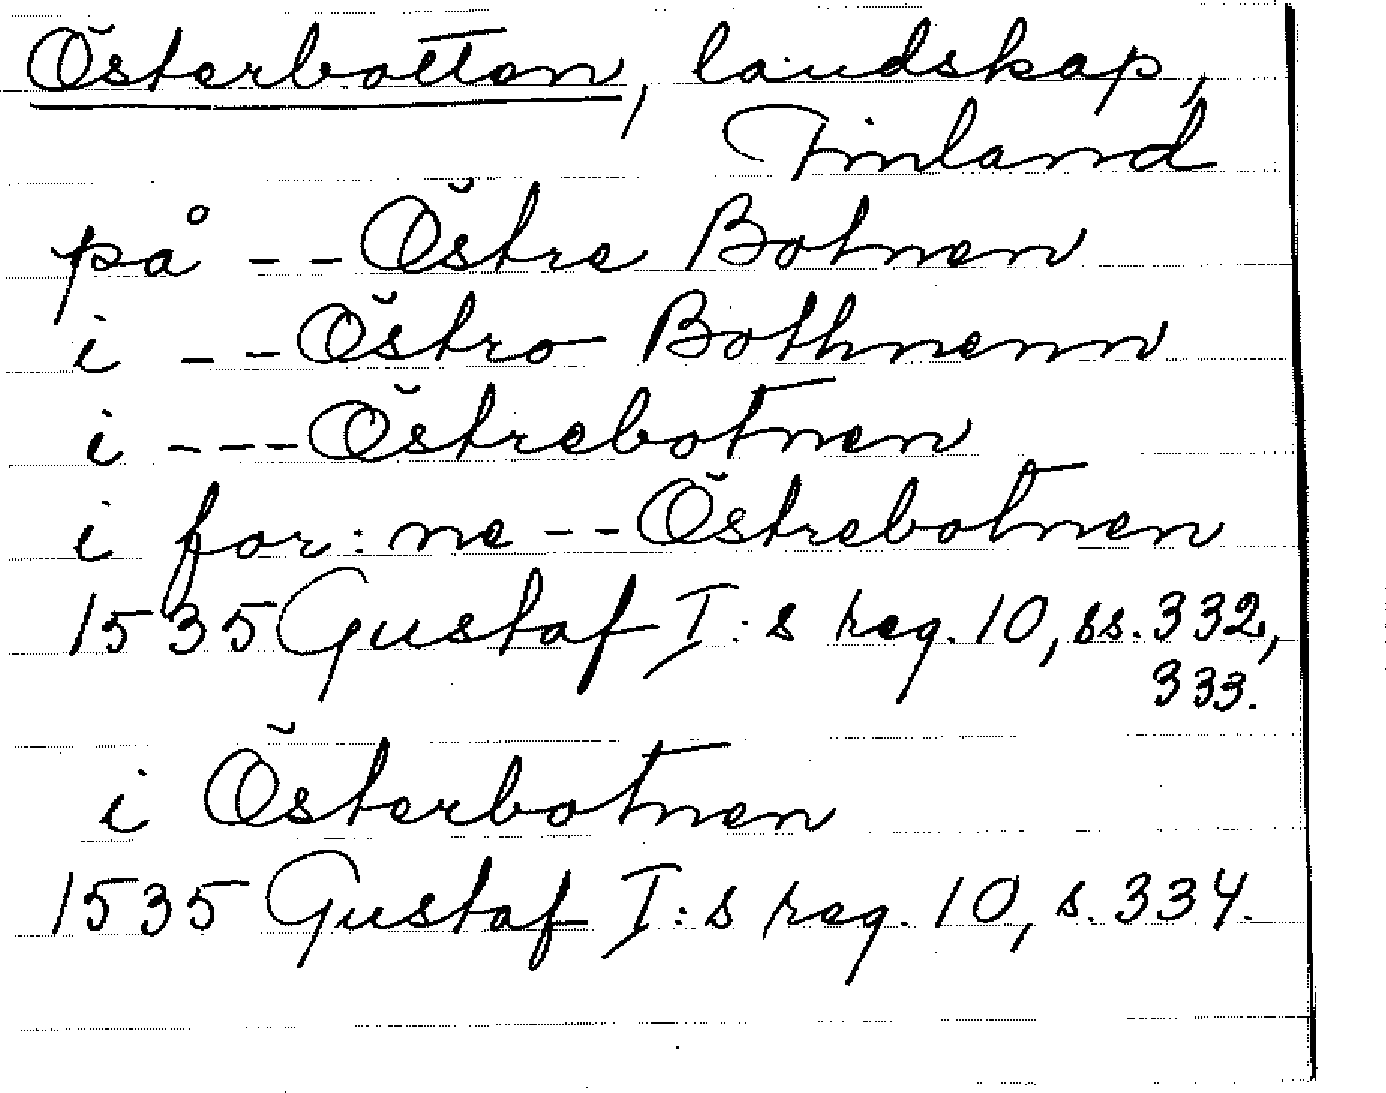 Österbotten, landskap,
Finland
på -- Östre Botnen
i -- Östro Bothnenn
i --- Östrebotnen
i for:ne -- Östrebotnen
1535 Gustaf I:s reg. 10, ss. 332,
333.
i Österbotnen
1535 Gustaf I:s reg. 10, s. 334.